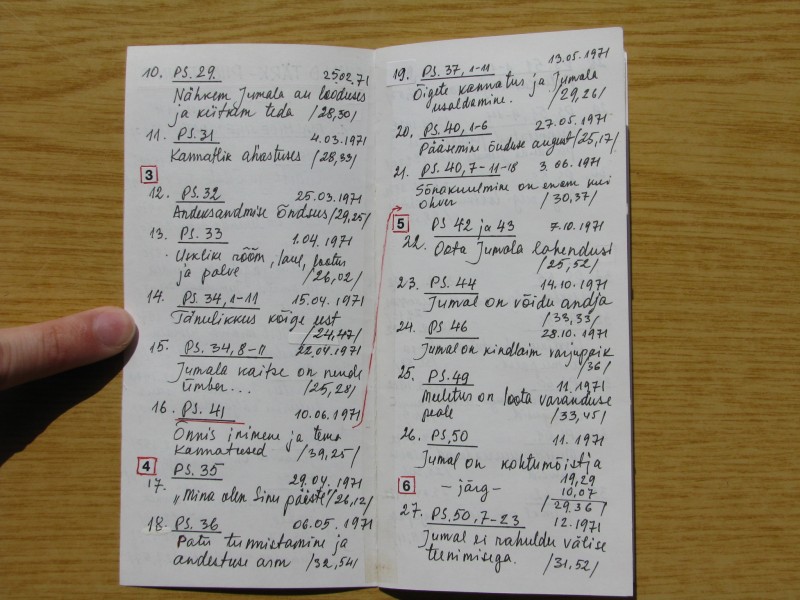 10. PS. 29. 25.02.71
Nähkem Jumala au looduses
ja kiitkem teda /28,30/
11. PS.31 4.03.1971
Kannatlik ahastuses /28,33/
3
12. PS.32 25.03.1971
Andeksandmise õndsus /29,25/
13. PS. 33 1.04.1971
Uskliku rõõm, laul, lootus
ja palve /26,02/
14. PS. 34,1-11 15.04.1971
Tänulikkus kõige eest
/24,47/
15. PS. 34,8-11 22.04.1971
Jumala kaitse on nende
ümber... /25,28/
16. PS. 41 10.06.1971
Õnnis inimene ja tema
kannatused /39,25/
4 PS. 35 29.04.1971
17. „Mina olen Sinu pääste" /26,12/
18. PS. 36 06.05.1971
Patu tunnistamine ja
andestuse arm /32,54/
19. PS. 37, 1-11 13.05.1971
Õigete kannatus ja Jumala
usaldamine. /29,26/
20. PS. 40,1-6 27.05.1971
Pääsemine õuduse august /25,17/
21. PS. 40,7-11-18 3.06.1971
Sõnakuulmine on enam kui
ohver /30,37/
5 PS 42 ja 43 7.10.1971
22. Oota Jumala lahendusi
/25,52/
23. PS. 44 14.10.1971
Jumal on võidu andja
/33,33/
24. PS 46 28.10.1971
Jumal on kindlaim varjupaik
/36/
25. PS.49 11.1971
Meeletus on loota varanduse
peale /33,45/
26. PS,50 11.1971
Jumal on kohtumõistja
6 – järg – 19,29
10,07
/29.36/
27. PS.50,7-23 12.1971
Jumal ei rahuldu välise
teenimisega. /31,52/